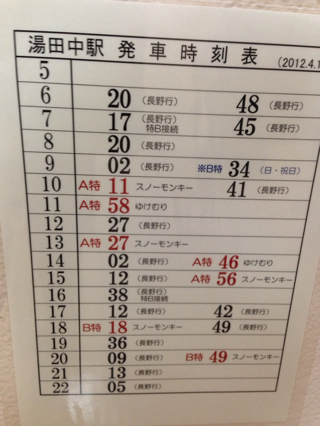 湯田中駅 発車時刻表 (2012.4.1
5
6 20 (長野行) 48 (長野行)
7 17 (長野行) 特B接続 45 (長野行)
8 20 (長野行)
9 02 (長野行) ※B特 34 (日・祝日)
10 A特 11 スノーモンキー 41 (長野行)
11 A特 58 ゆけむり
12 27 (長野行)
13 A特 27 スノーモンキー
14 02 (長野行) A特 46 ゆけむり
15 12 (長野行) A特 56 スノーモンキー
16 38 (長野行) 特B接続
17 12 (長野行) 42 (長野行)
18 B特 18 スノーモンキー 49 (長野行)
19 36 (長野行)
20 09 (長野行) B特 49 スノーモンキー
21 13 (長野行)
22 05 (長野行)